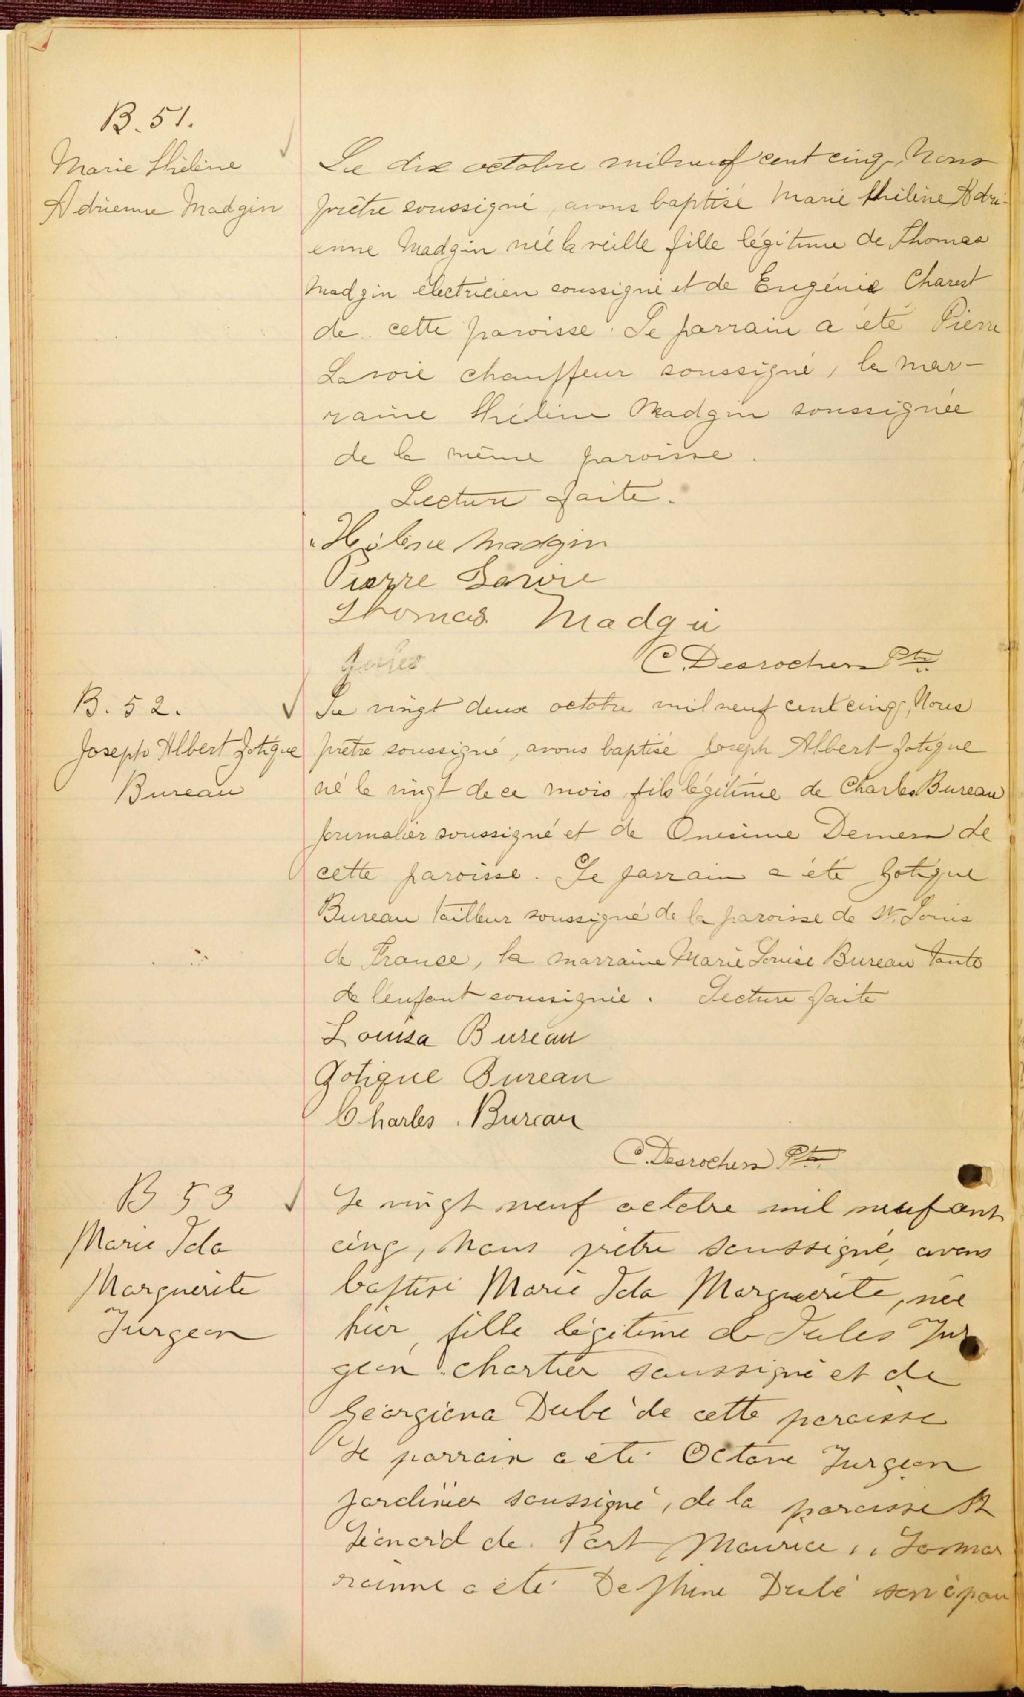 B. 51.
Marie Hhélène
Adrienne Madgin
Le dix octobre mil neuf cent cinq, Nous
prêtre soussigné, avons baptisé Marie Hhélène Adri-
enne Madgin née la veille fille légitime de Thomas
Madgin électricien soussigné et de Eugénie Charest
de cette paroisse. Le parrain a été Pierre
Lavoie chauffeur soussigné, la mar-
raine Hhélène Madgin soussignée
de la même paroisse.
Lecture faite.
Hélène Madgin
Pierre Lavoie
Thomas Madgin
C. Desrochers Ptre
B. 52.
Joseph Albert Zotique
Bureau
Le vingt deux octobre mil neuf cent cinq, Nous
prêtre soussigné, avons baptisé Joseph Albert Zotique
né le vingt de ce mois fils légitime de Charles Bureau
journalier soussigné et de Onésime Demers de
cette paroisse. Le parrain a été Zotique
Bureau tailleur soussigné de la paroisse de St. Louis
de France, la marraine Marie Louise Bureau tante
de l'enfant soussignée. Lecture faite
Louisa Bureau
Zotique Bureau
Charles. Bureau
C. Desrochers Ptre
B 53
Marie Ida
Marguerite
Turgeon
Le vingt neuf octobre mil neuf cent
cinq, Nous prêtre soussigné, avons
baptisé Marie Ida Marguerite, née
hier, fille légitime de Jules Tur
geon chartier soussigné et de
Georgiana Dubé de cette paroisse
Le parrain a été Octave Turgeon
jardinier soussigné, de la paroisse St
Léonard de Port Maurice, la mar
rainne a été Delphine Dubé son épou